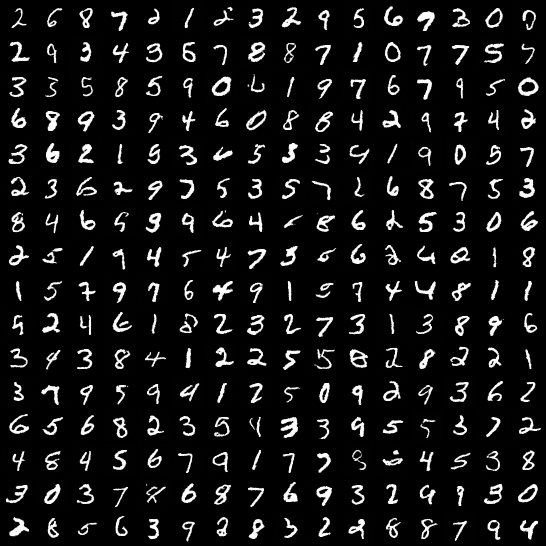 2 6 8 7 2 1 2 3 2 9 5 6 9 3 0 0
2 9 3 4 3 5 7 8 8 7 1 0 7 7 5 5
3 3 5 8 5 9 0 6 1 9 7 6 7 9 5 0
6 8 9 3 9 4 6 0 8 8 4 2 9 7 4 2
3 6 2 1 5 3 6 5 3 3 4 1 9 0 5 7
2 3 6 2 9 7 5 3 5 7 1 6 8 7 5 3
8 4 6 5 9 9 6 4 8 6 2 5 3 0 6
2 5 1 9 4 5 4 7 3 5 6 2 4 0 1 8
1 5 7 9 7 6 4 9 1 5 7 4 4 8 1 1
9 2 4 6 1 8 2 3 2 7 3 1 3 8 9 6
3 4 3 8 4 1 2 2 5 5 8 2 8 2 2 1
3 7 9 5 9 4 1 2 5 0 9 2 9 3 6 2
6 5 6 8 2 3 5 4 3 3 9 5 5 3 7 2
4 8 4 5 6 7 9 1 7 7 8 4 5 3 8
3 0 3 7 8 6 8 7 6 9 3 2 9 9 3 0
2 8 5 6 3 9 2 8 3 2 2 8 8 7 9 4